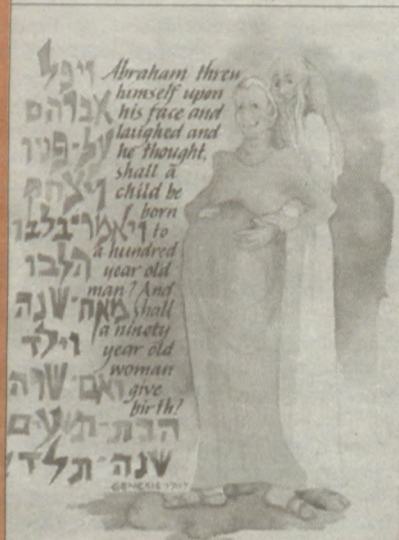 ויפל
אברהם
על-פניו
ויצחק
ויאמר-בלבו
הלבן
מאה-שנה
יולד
ואם-שרה
הבת-תשעים
שנה-תלד
Abraham threw
himself upon
his face and
laughed and
he thought,
shall a
child be
born
to
a hundred
year old
man? And
shall
a ninety
year old
woman
give
birth?
GENESIS 17:17